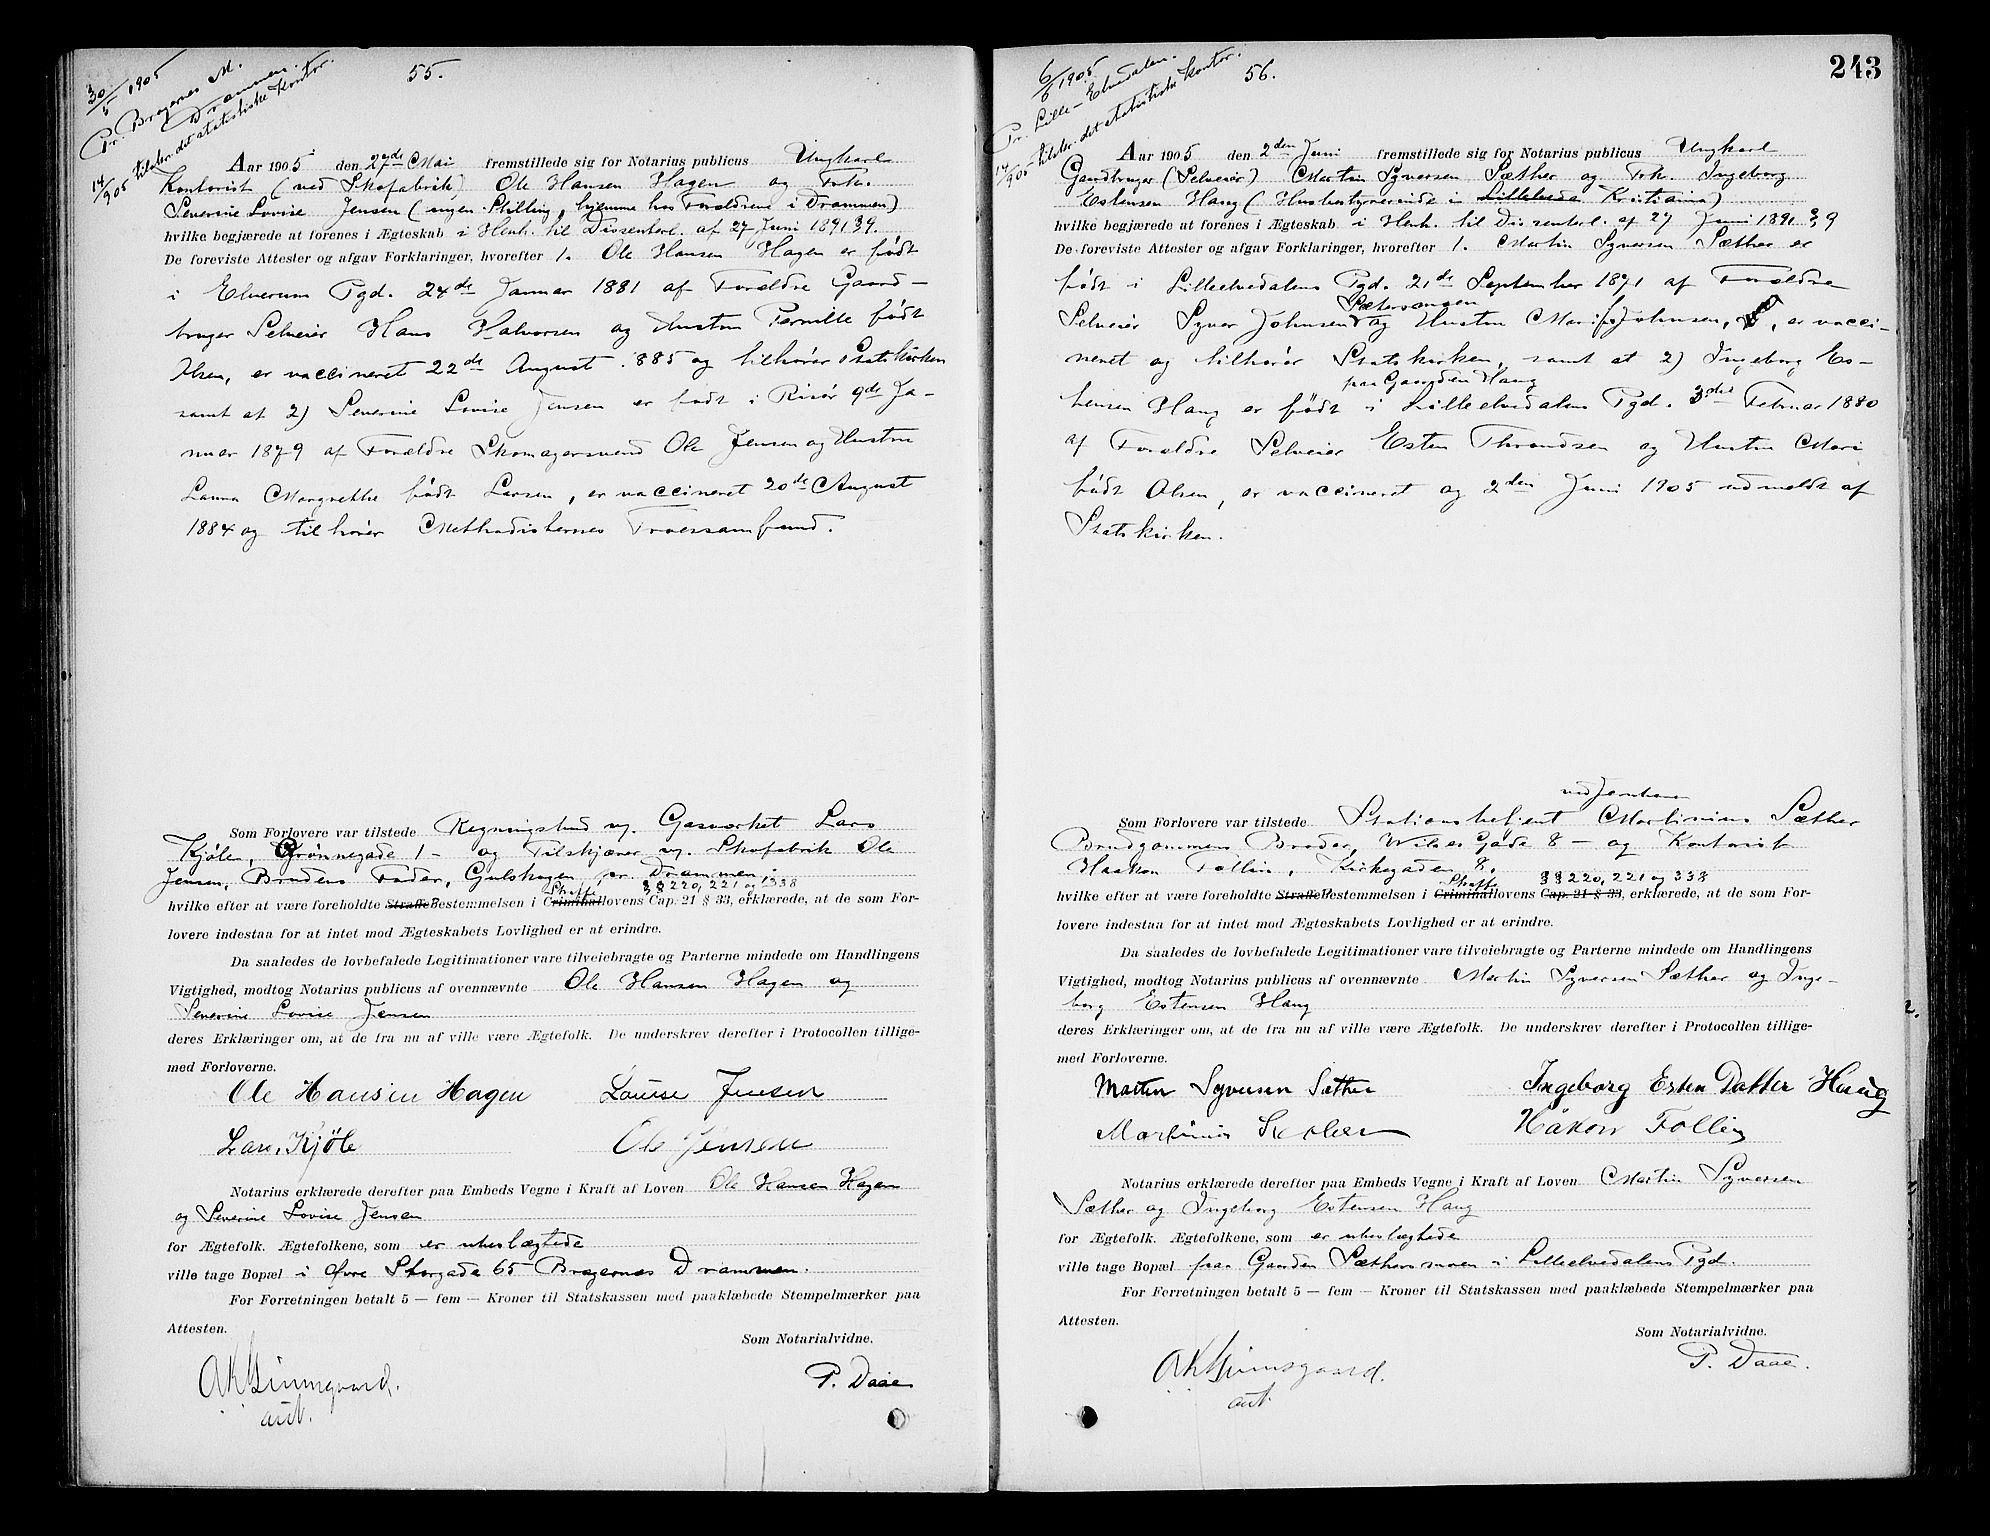 30/5 1905
Pr. Bragernes M.
Drammen.
14/9 05 tilstev. det statistiske Kontor.
55.
Aar 1905 den 27de Mai fremstillede sig for Notarius publicus Ungkarl
Kontorist (ved Skofabrik) Ole Hansen Hagen og Frk.
Severine Lovise Jensen (ingen Stilling, hjemme hos Forældrene i Drammen)
hvilke begjærede at forenes i Ægteskab i Henh. til Dissenterl. af 27 Juni 1891 39.
De foreviste Attester og afgav Forklaringer, hvorefter 1. Ole Hansen Hagen er født
i Elverum Pgd. 24de Januar 1881 af Forældre Gaard-
bruger Selveier Hans Halvorsen og Hustru Pernille født
Olsen, er vaccineret 22de August 1885 og tilhører Statskirken
samt at 2) Severine Lovise Jensen er født i Risør 9de Ja-
nuar 1879 af Forældre Skomagersvend Ole Jensen og Hustru
Laura Margrethe født Larsen, er vaccineret 20de August
1884 og tilhører Methodisternes Troessamfund.
Som Forlovere var tilstede Regningsbud v. Gasværket Lars
Kjølen, Grønnegade 1 - og Tilskjærer v. Skofabrik Ole
Jensen, Brudens Fader, Gulskogen pr. Drammen.
Straffe §§ 220, 221 og 338
hvilke efter at være foreholdte Straffebestemmelsen i Criminallovens Cap. 21 § 33, erklærede, at de som For-
lovere indestaa for at intet mod Ægteskabets Lovlighed er at erindre.
Da saaledes de lovbefalede Legitimationer vare tilveiebragte og Parterne mindede om Handlingens
Vigtighed, modtog Notarius publicus af ovennævnte Ole Hansen Hagen og
Severine Lovise Jensen
deres Erklæringer om, at de fra nu af ville være Ægtefolk. De underskrev derefter i Protocollen tillige-
med Forloverne.
Ole Hansen Hagen Louise Jensen
Lars Kjöle Ole Jensen
Notarius erklærede derefter paa Embeds Vegne i Kraft af Loven Ole Hansen Hagen
og Severine Lovise Jensen
for Ægtefolk. Ægtefolkene, som er ubeslægtede
ville tage Bopæl i Øvre Storgade 65 Bragernes Drammen.
For Forretningen betalt 5 — fem — Kroner til Statskassen med paaklæbede Stempelmærker paa
Attesten.
Som Notarialvidne.
P. Daae
aut.
243
6/6 1905
Pr. Lille-Elvedalen.
14/9 05 tilstev. det statistiske Kontor.
56.
Aar 1905 den 2den Juni fremstillede sig for Notarius publicus Ungkarl
Gaardbruger (Selveier) Martin Syversen Sæther og Frk. Ingeborg
Estensen Haug (Husbestyrerinde i Kristiania)
hvilke begjærede at forenes i Ægteskab i Henh. til Dissenterl. af 27 Juni 1891 39
De foreviste Attester og afgav Forklaringer, hvorefter 1. Martin Syversen Sæther er
født i Lilleelvedalens Pgd. 21de September 1871 af Forældre
Sætersmoen
Selveier Syver Johnsen og Hustru Mari født Johnsen, er vacci-
neret og tilhører Statskirken, samt at 2) Ingeborg Es-
paa Gaarden Haug
tensen Haug er født i Lilleelvedalens Pgd. 3die Februar 1880
af Forældre Selveier Esten Throndsen og Hustru Mari
født Olsen, er vaccineret og 2den Juni 1905 udmeldt af
Statskirken.
ved Jernbanen
Som Forlovere var tilstede Stationsbetjent Martinius Sæther
Brudgommens Broder, Wilses Gade 8 - og Kontorist
Haakon Follin, Kirkegaden 8.
Straffe §§ 220, 221 og 338
hvilke efter at være foreholdte Straffebestemmelsen i Criminallovens Cap. 21 § 33, erklærede, at de som For-
lovere indestaa for at intet mod Ægteskabets Lovlighed er at erindre.
Da saaledes de lovbefalede Legitimationer vare tilveiebragte og Parterne mindede om Handlingens
Vigtighed, modtog Notarius publicus af ovennævnte Martin Syversen Sæther og Inge-
borg Estensen Haug
deres Erklæringer om, at de fra nu af ville være Ægtefolk. De underskrev derefter i Protocollen tillige-
med Forloverne.
Martin Syversen Sæther Ingeborg Esten Datter Haug
Martinius Håkon Follin
Notarius erklærede derefter paa Embeds Vegne i Kraft af Loven Martin Syversen
Sæther og Ingeborg Estensen Haug
for Ægtefolk. Ægtefolkene, som er ubeslægtede
ville tage Bopæl paa Gaarden Sæthersmoen i Lilleelvedalens Pgd.
For Forretningen betalt 5 — fem — Kroner til Statskassen med paaklæbede Stempelmærker paa
Attesten.
Som Notarialvidne.
P. Daae.
aut.